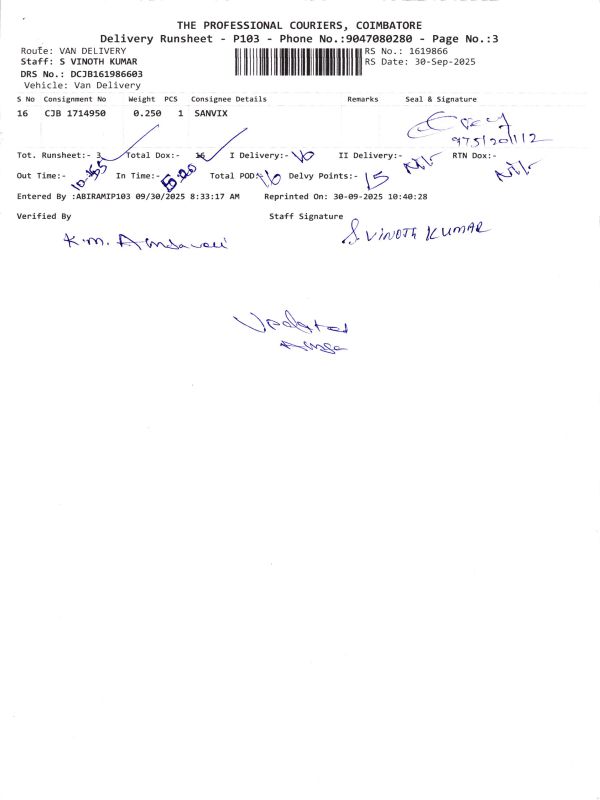 THE PROFESSIONAL COURIERS, COIMBATORE
Delivery Runsheet - P103 - Phone No.:9047080280 - Page No.:3
Route: VAN DELIVERY RS No.: 1619866
Staff: S VINOTH KUMAR RS Date: 30-Sep-2025
DRS No.: DCJB161986603
Vehicle: Van Delivery
S No Consignment No Weight PCS Consignee Details Remarks Seal & Signature
16 CJB 1714950 0.250 1 SANVIX
Tot. Runsheet:- 3 Total Dox:- 16 I Delivery:- 16 II Delivery:- Nil RTN Dox:- Nil
Out Time:- In Time:- Total POD:- 16 Delvy Points:- 15
Entered By :ABIRAMIP103 09/30/2025 8:33:17 AM Reprinted On: 30-09-2025 10:40:28
Verified By Staff Signature
S. VINOTH KUMAR
Updated